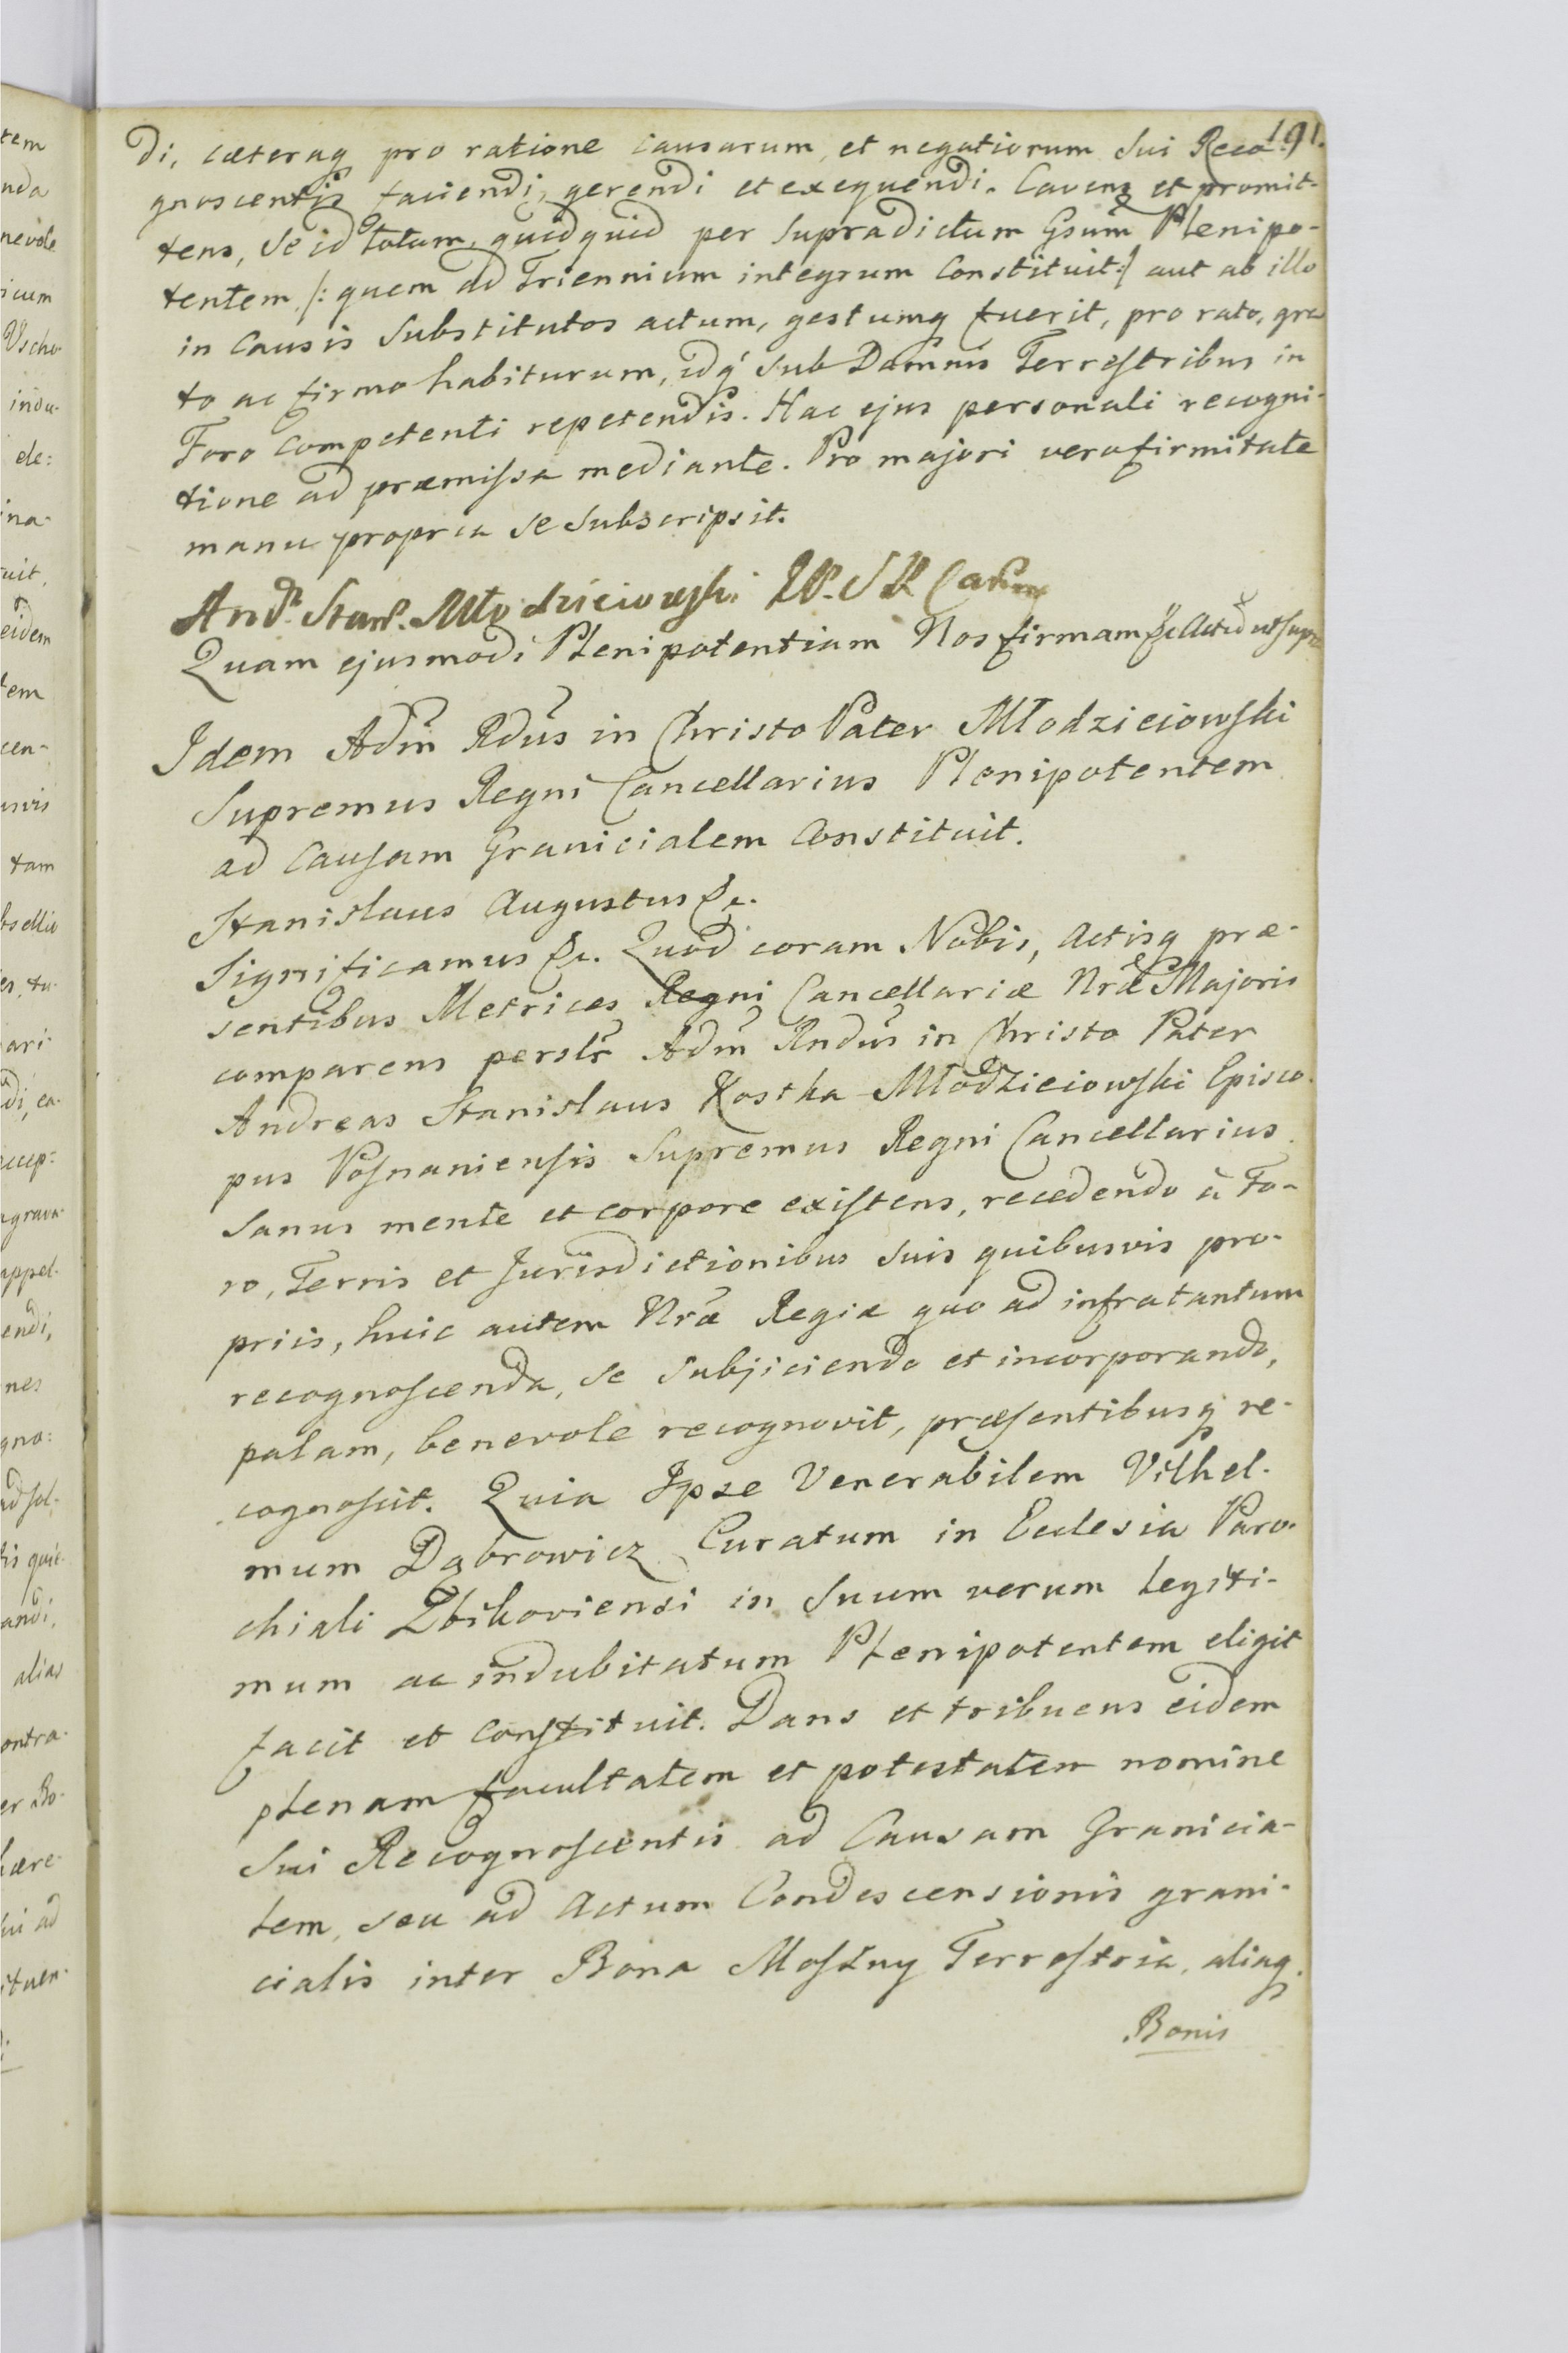 191.
di, cæteraq pro ratione causarum, et negotiorum sui Reco-
gnoscentis faciendi, gerendi et exequendi. Cavens et promit-
tens, se id totum, quidquid per supradictum Gsum Plenipo-
tentem /: quem ad Triennium integrum Constituit :/ aut ab illo
in Causis Substitutos actum, gestumq fuerit, pro rato, gra
to ac firmo habiturum, idq sub Damnis Terrestribus in
Foro Competenti repetendis. Hac ejus personali recogni-
tione ad præmissa mediante. Pro majori vero firmitate
manu propria se subscripsit.
And. Stanl. Młodzieiowski
Quam ejusmodi Plenipotentiam Nos firmam &c Actũ ut supra
Idem Adm Rdus in Christo Pater Młodzieiowski
Supremus Regni Cancellarius Plenipotentem
ad Causam Granicialem Constituit.
Stanislaus Augustus &c.
Significamus &c. Quod coram Nobis, Actisq præ-
sentibus Metrices Regni Cancellariæ Nræ Majoris
comparens perslr Adm Rndus in Christo Pater
Andreas Stanislaus Kostka Młodzieiowski Episco-
pus Posnaniensis Supremus Regni Cancellarius
Sanus mente et corpore existens, recedendo à Fo-
ro, Terris et Jurisdictionibus suis quibusvis pro-
priis, huic autem Nræ Regiæ quo ad infra tantum
recognoscenda, se subjiciendo et incorporando,
palam, benevole recognovit, præsentibusq re-
cognoscit. Quia Ipse Venerabilem Vilhel-
mum Dąbrowicz Curatum in Ecclesia Paro-
chiali Zbikoviensi in Suum verum legiti-
mum ac indubitatum Plenipotentem eligit
facit et constituit. Dans et tribuens eidem
plenam facultatem et potestatem nomine
Sui Recognoscentis ad Causam Granicia-
lem, seu ad Actum Condescensionis grani-
cialis inter Bona Moszny Terrestria, aliaq
Bonis